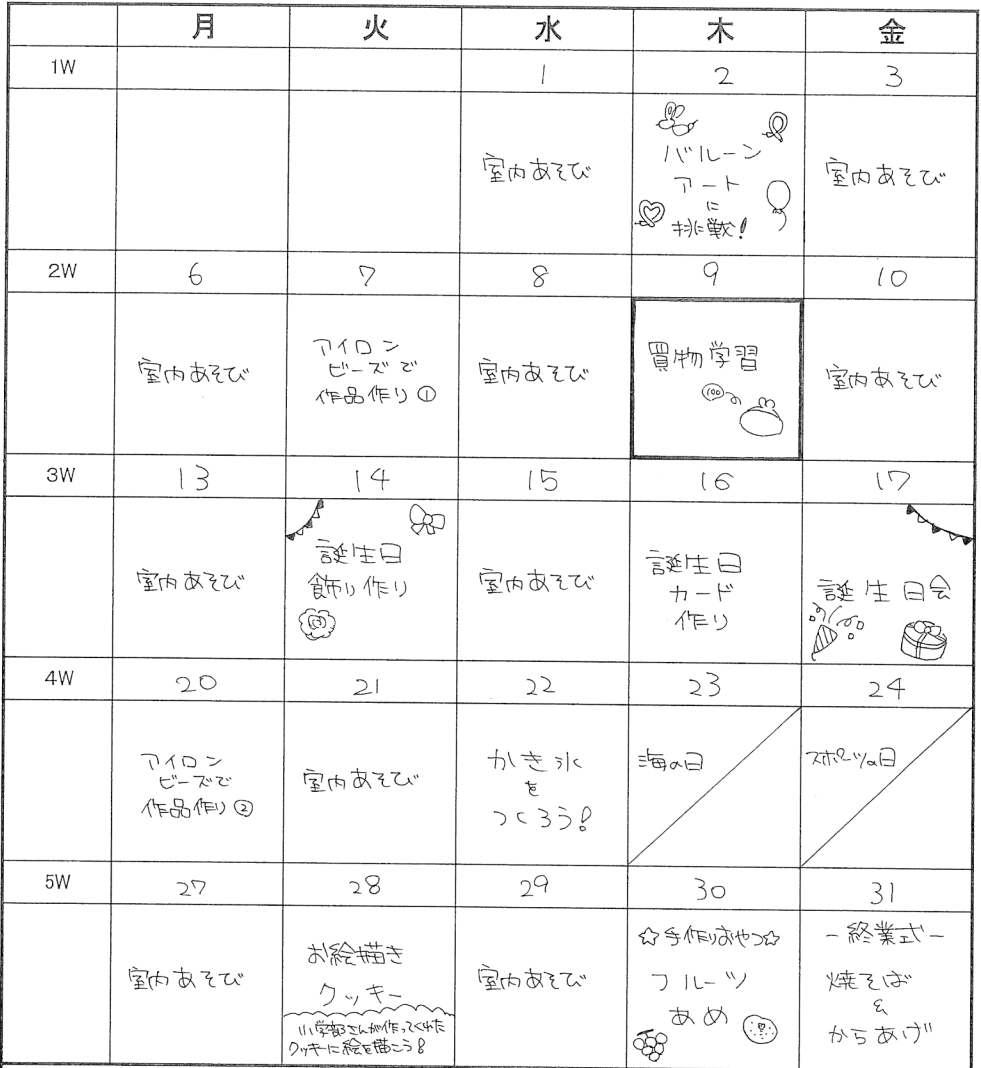 月 火 水 木 金
1W 1 2 3
室内あそび
バルーン
アート
に
挑戦!
室内あそび
2W 6 7 8 9 10
室内あそび
アイロン
ビーズで
作品作り①
室内あそび
買物学習
100
室内あそび
3W 13 14 15 16 17
室内あそび
誕生日
飾り作り
室内あそび
誕生日
カード
作り
誕生日会
4W 20 21 22 23 24
アイロン
ビーズで
作品作り②
室内あそび
かき氷
を
つくろう!
海の日
スポーツの日
5W 27 28 29 30 31
室内あそび
お絵描き
クッキー
小学部さんが作ってくれた
クッキーに絵を描こう!
室内あそび
☆手作りおやつ☆
フルーツ
あめ
-終業式-
焼そば
&
からあげ